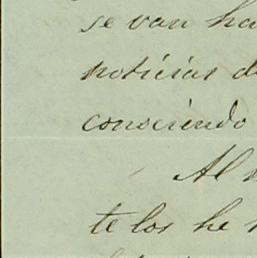 se van ha
noticias d
consciendo
Al
te los he